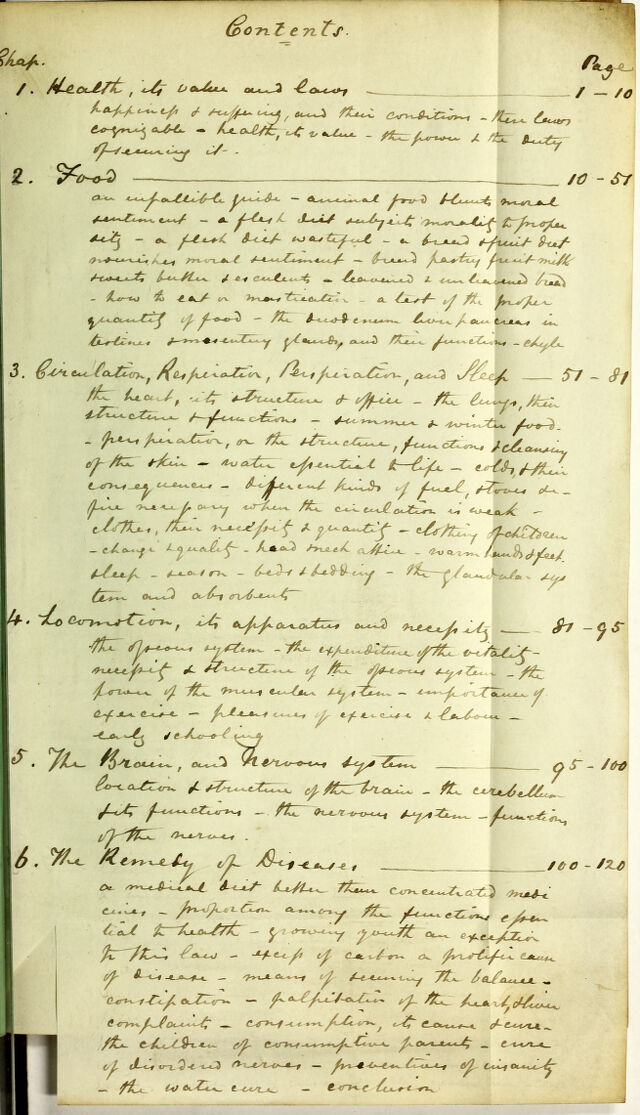 Contents.
Chap. Page
1. Health, its value and laws 1 - 10
happiness & suffering, and their conditions - these laws
cognizable - health, its value - the power & the duty
of securing it -
2. Food 10 - 51
an infallible guide - animal food blunts moral
sentiment - a flesh diet subjects morality to propen
sity - a flesh diet wasteful - a bread & fruit diet
nourishes moral sentiment - bread pastry fruit milk
sweets butter & esculents - leavened & unleavened bread
- how to eat or mastication - a test of the proper
quantity of food - the duodenum liver pancreas in
testines & mesentery glands, and their functions - chyle
3. Circulation, Respiration, Perspiration, and Sleep - 51 - 81
the heart, its structure & office - the lungs, their
structure & functions - summer & winter food -
- perspiration, or the structure, functions & cleansing
of the skin - water essential to life - colds, & their
consequences - different kinds of fuel, stoves &c -
fire necessary when the circulation is weak -
clothes, their necessity & quantity - clothing of children
- change & quality - head & neck attire - warm hands & feet.
sleep - season - beds & bedding - the glandular sys
tem and absorbents
4. Locomotion, its apparatus and necessity - 81 - 95
the osseous system - the expenditure of the vitality -
necessity & structure of the osseous system - the
power of the muscular system - importance of
exercise - pleasures of exercise & labour -
early schooling
5. The Brain, and Nervous system 95 - 100
location & structure of the brain - the cerebellum
& its functions - the nervous system - functions
of the nerves.
6. The Remedy of Diseases 100 - 120
a medical diet better than concentrated medi
cines - proportion among the functions essen
tial to health - growing youth an exception
to this law - excess of carbon a prolific cause
of disease - means of securing the balance -
constipation - palpitation of the heart, & liver
complaints - consumption, its cause & cure -
the children of consumptive parents - cure
of disordered nerves - preventives of insanity
- the water cure - conclusion